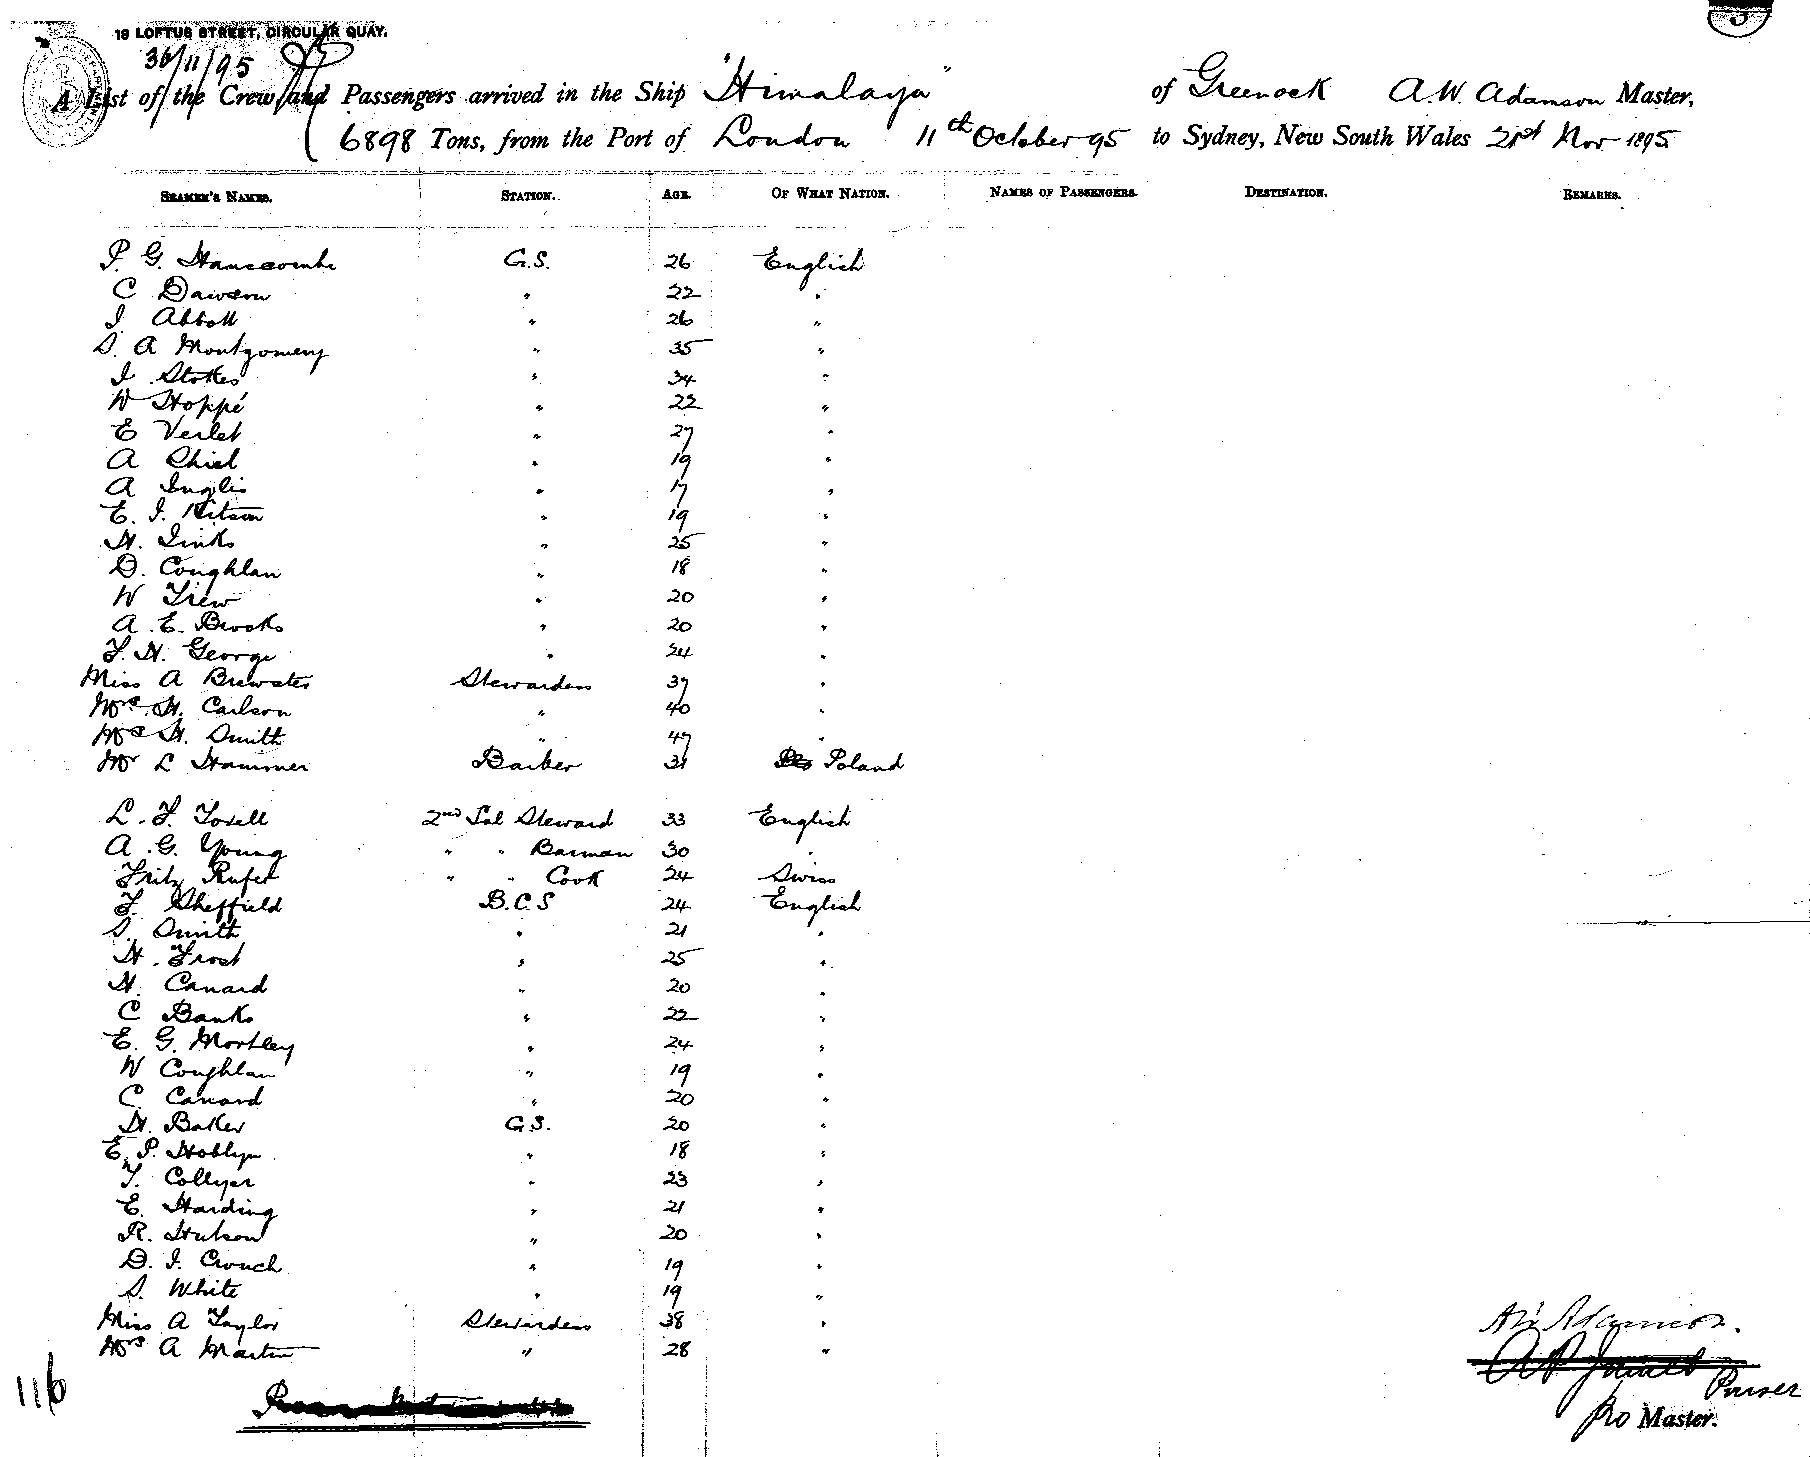 19 LOFTUS STREET, CIRCULAR QUAY.
30/11/95
A List of the Crew and Passengers arrived in the Ship "Himalaya" of Greenock A.W. Adamson Master,
6898 Tons, from the Port of London 11th October 95 to Sydney, New South Wales 21st Nov 1895
SEAMEN'S NAMES. STATION. AGE. OF WHAT NATION. NAMES OF PASSENGERS. DESTINATION. REMARKS.
P. G. Hanscombe G.S. 26 English
C Dawson " 22 "
J Abbott " 26 "
S. A Montgomery " 35 "
J Stokes " 34 "
W Hoppé " 22 "
E Verlet " 27 "
A Shiel " 19 "
A Inglis " 17 "
E. J. Kitson " 19 "
H. Jinks " 25 "
D. Coughlan " 18 "
W Trew " 20 "
A. E. Brooks " 20 "
F. H. George " 24 "
Miss A Brewster Stewardess 37 "
Mrs. H. Carlson " 40 "
Mrs H. Smith " 47 "
Mr L Hammer Barber 31 Poland
L. F. Tovell 2nd Sal Steward 33 English
A. G. Young " " Barman 30 "
Fritz Rufer " " Cook 24 Swiss
F. Sheffield B.C.S 24 English
S. Smith " 21 "
H. Frost " 25 "
H. Canard " 20 "
C Banks " 22 "
E. G. Mortley " 24 "
W Coughlan " 19 "
C Canard " 20 "
H. Baker G.S. 20 "
E. P. Hoblyn " 18 "
T. Collyer " 23 "
E. Harding " 21 "
R. Hutson " 20 "
D. J. Crouch " 19 "
S. White " 19 "
Miss A Taylor Stewardess 38 "
Mrs A Martin " 28 "
A W Adamson.
Purser
116
pro Master.